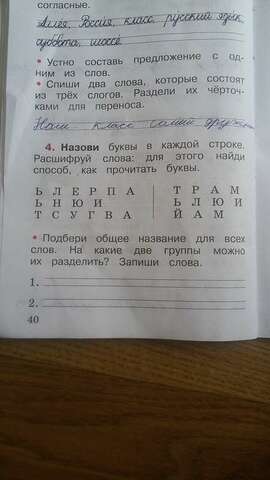 согласные.
Аллея, Россия, класс, русский язык,
суббота, шоссе.
• Устно составь предложение с од-
ним из слов.
• Спиши два слова, которые состоят
из трёх слогов. Раздели их чёрточ-
ками для переноса.
Наш класс самый
4. Назови буквы в каждой строке.
Расшифруй слова: для этого найди
способ, как прочитать буквы.
Ь Л Е Р П А Т Р А М
Ь Н Ю И Ь Л Ю И
Т С У Г В А Й А М
• Подбери общее название для всех
слов. На какие две группы можно
их разделить? Запиши слова.
1.
2.
40